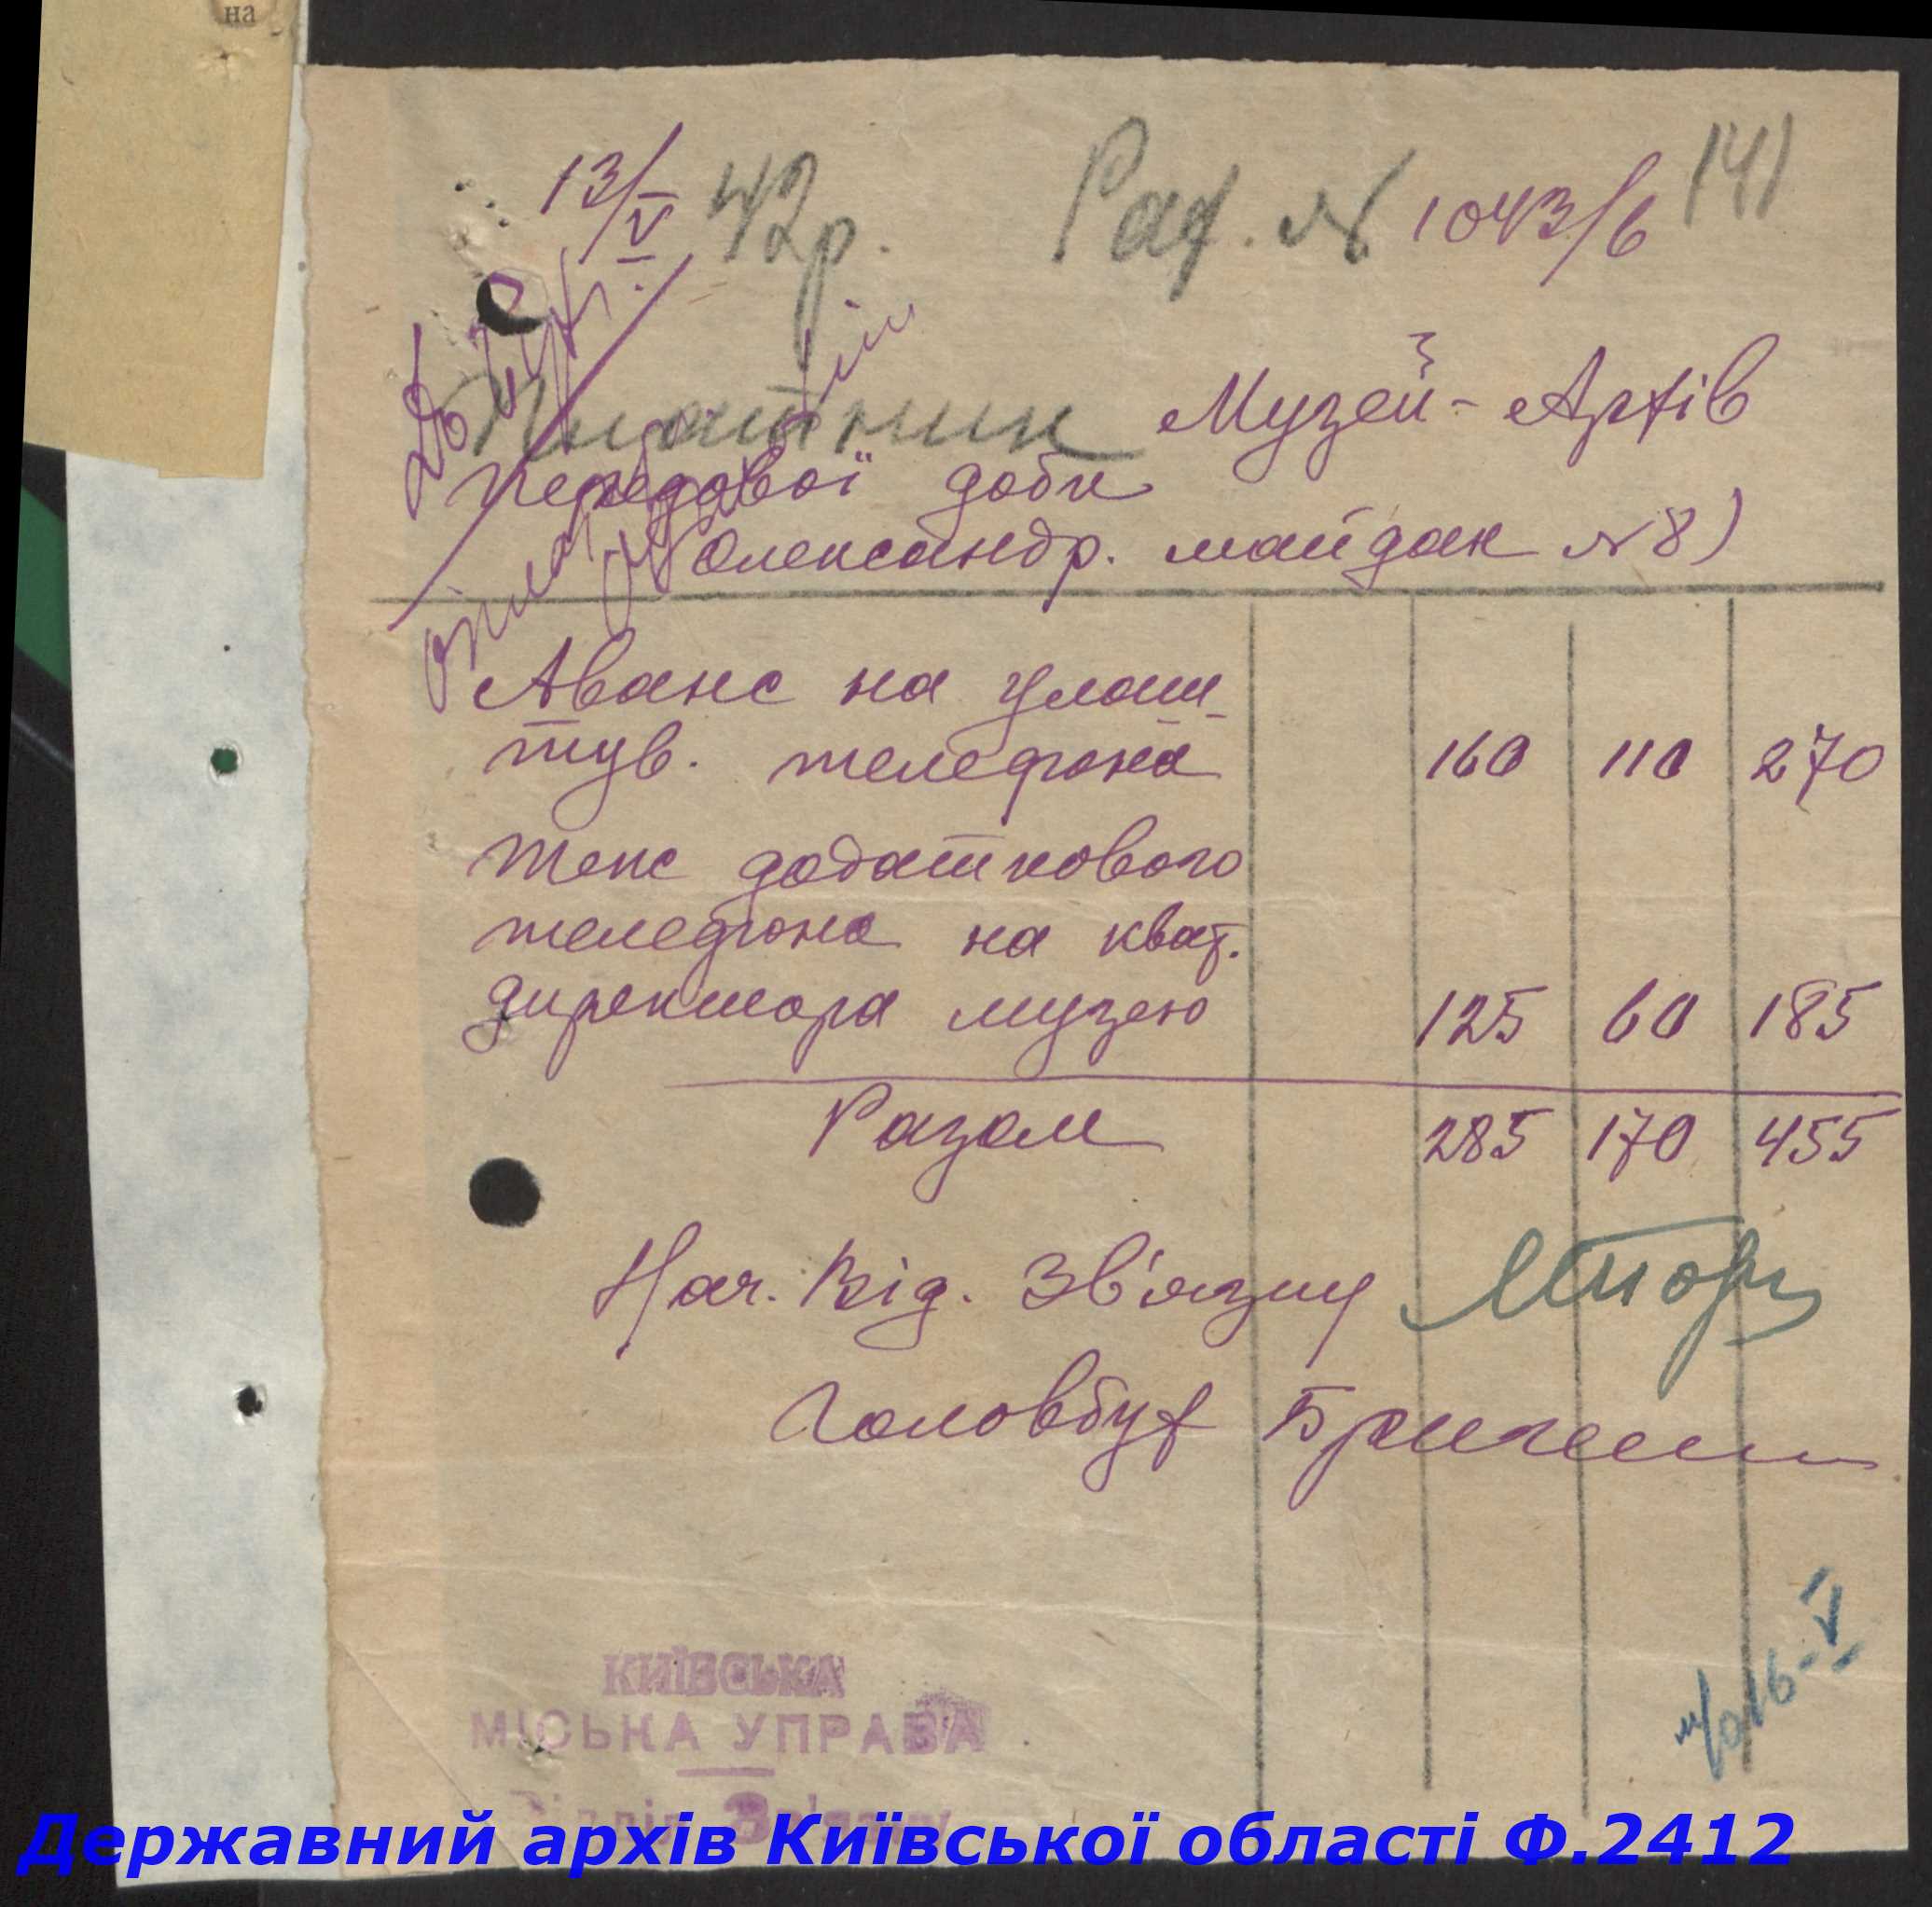 на
141
13/V 42р. Рах. № 1043/6
До
оплати
Платник Музей-Архів
Передової доби
Олександр. майдан №8)
Аванс на улаш-
тув. телефона 160 110 270
Теж додаткового
телефона на кварт.
директора музею 125 60 185
Разом 285 170 455
Нач. Від. Зв'язку
Головбух
16-V
КИЇВСЬКА
МІСЬКА УПРАВА
Відділ Зв'язку
Державний архів Київської області Ф.2412